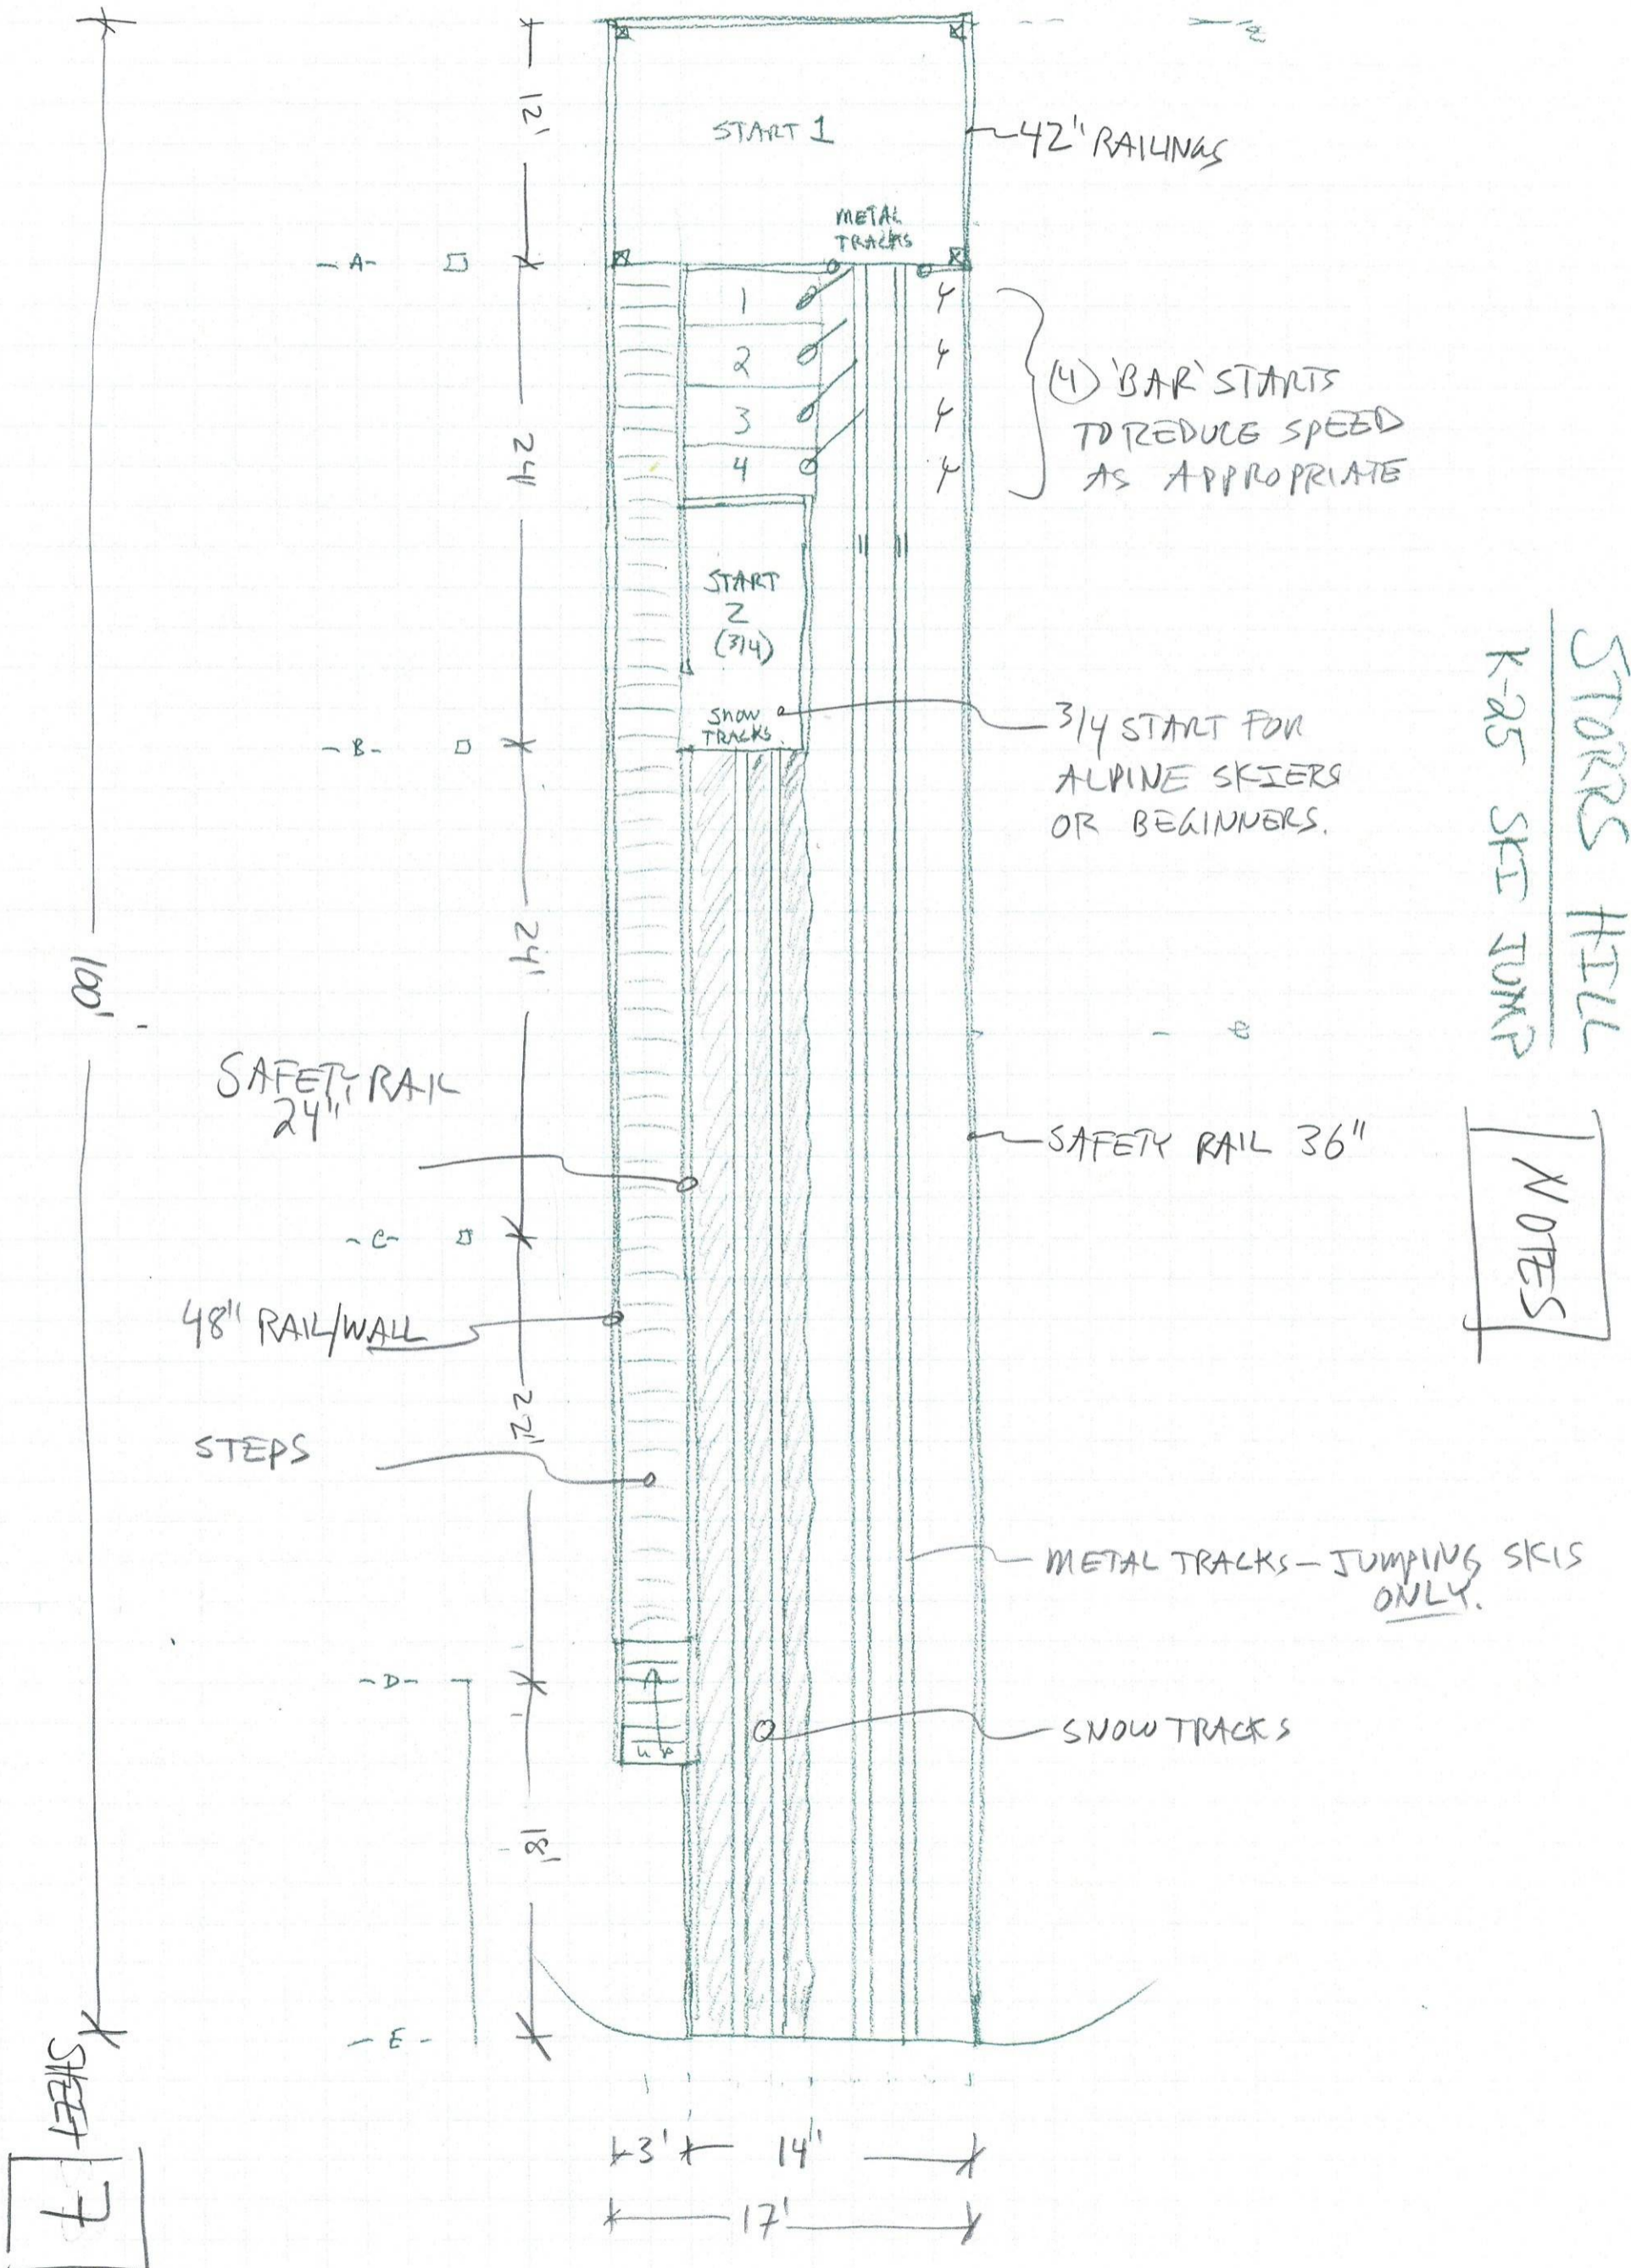 12'
START 1
42" RAILINGS
METAL
TRACKS
- A -
1
2
3
4
4
4
4
4
(4) 'BAR' STARTS
TO REDUCE SPEED
AS APPROPRIATE
24'
START
2
(3/4)
SNOW
TRACKS
- B -
3/4 START FOR
ALPINE SKIERS
OR BEGINNERS.
STORRS HILL
K-25 SKI JUMP
NOTES
24'
100'
SAFETY RAIL
24"
SAFETY RAIL 36"
- C -
48" RAIL/WALL
22"
STEPS
METAL TRACKS - JUMPING SKIS
ONLY.
- D -
UP
SNOW TRACKS
18'
- E -
SHEET
7
3'
14"
17'